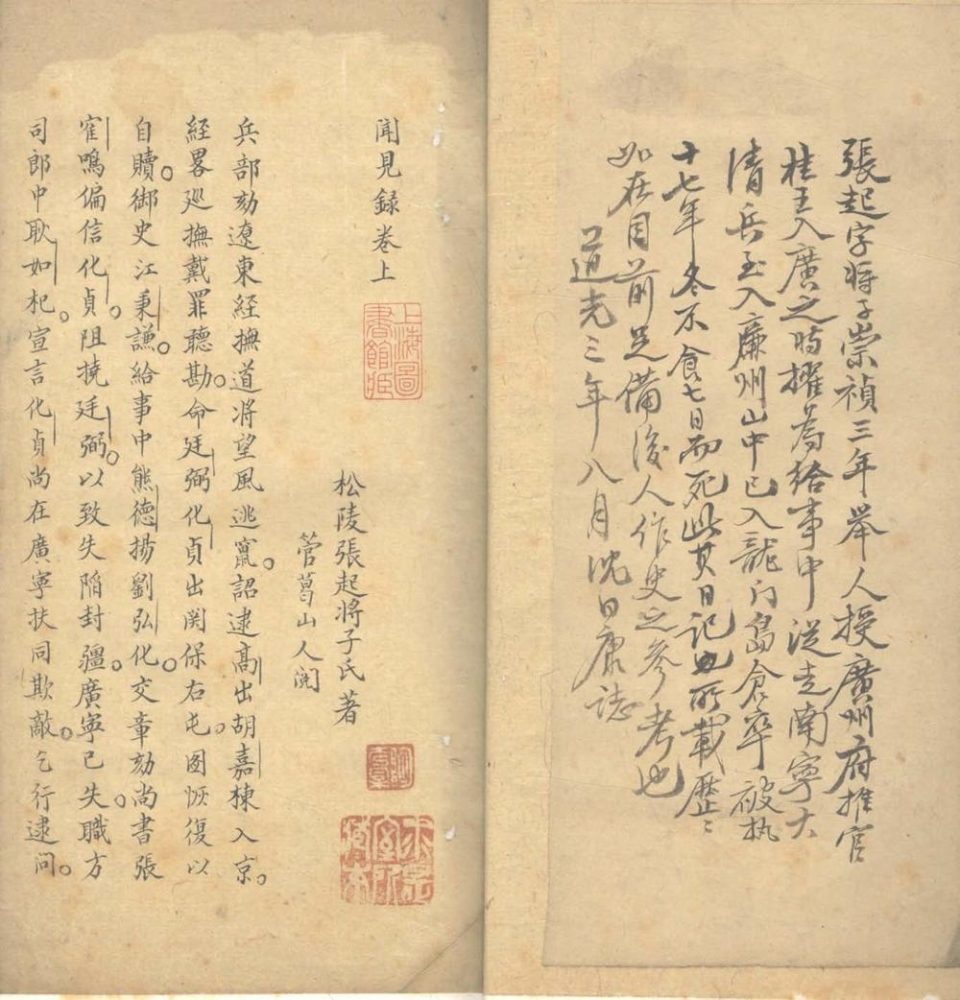 張起字將子崇禎三年举人授廣州府推官
桂王入廣之時擢為給事中從走南寧大
清兵至入廉州山中已入龍门島倉卒被执
十七年冬不食七日而死此其日記也所載歷〻
如在目前足備後人作史之參考也
道光三年八月沈日康誌
聞見錄卷上
上海圖
書館藏
松陵張起將子氏著
菅葛山人閱
兵部劾遼東經撫道將望風逃竄。詔逮高出胡嘉棟入京。
經畧廵撫戴罪聽勘。命廷弼化貞出関保右屯。图恢復以
自贖。御史江秉謙。給事中熊德揚劉弘化。交章劾尚書張
寉鳴偏信化貞。阻撓廷弼。以致失陷封疆。廣寧已失。職方
司郎中耿如杞。宣言化貞尚在廣寧扶同欺敵。乞行逮问。